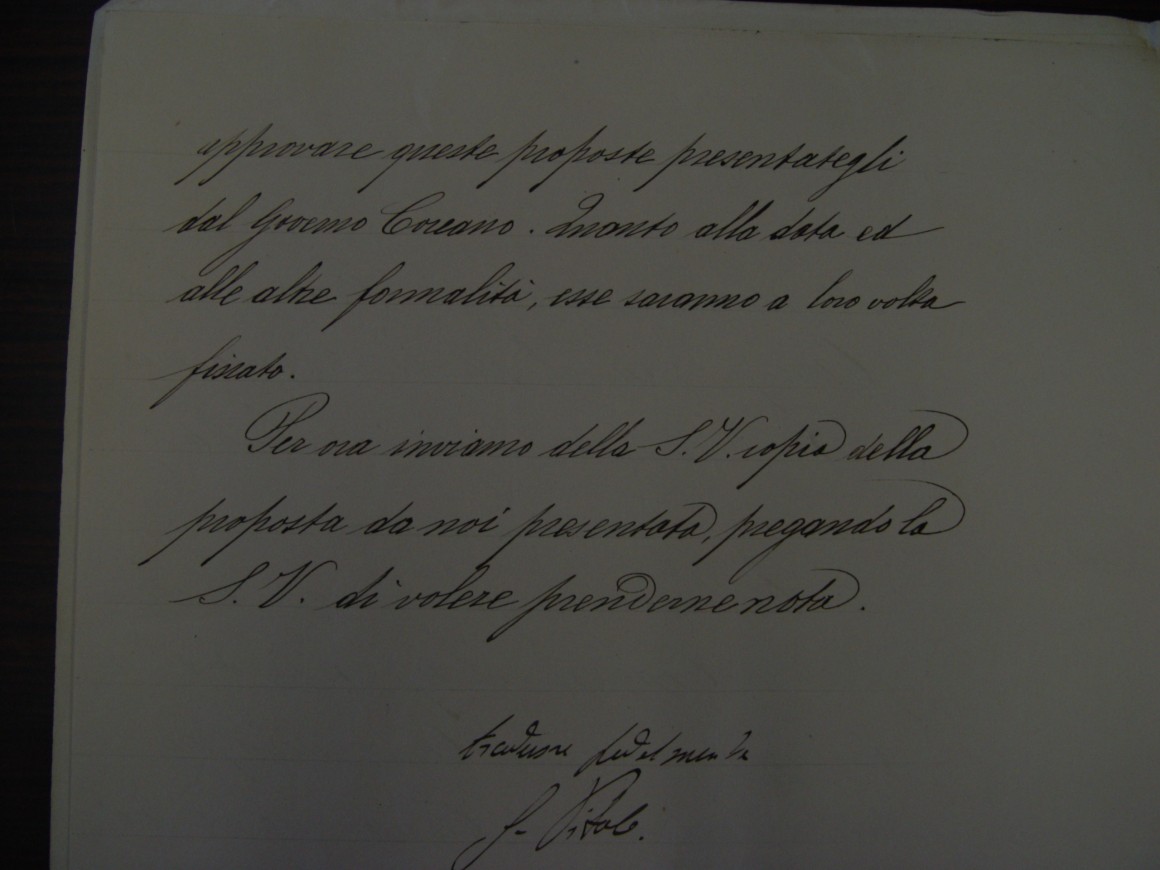 approvare queste proposte presentategli
dal Governo Coreano. Quanto alla data ed
alle altre formalità, esse saranno a loro volta
fissato.
Per ora inviamo della S.V. copia della
proposta da noi presentata, pregando la
S.V. di volere prenderne nota.
tradusse fedelmente
G. Vitale.